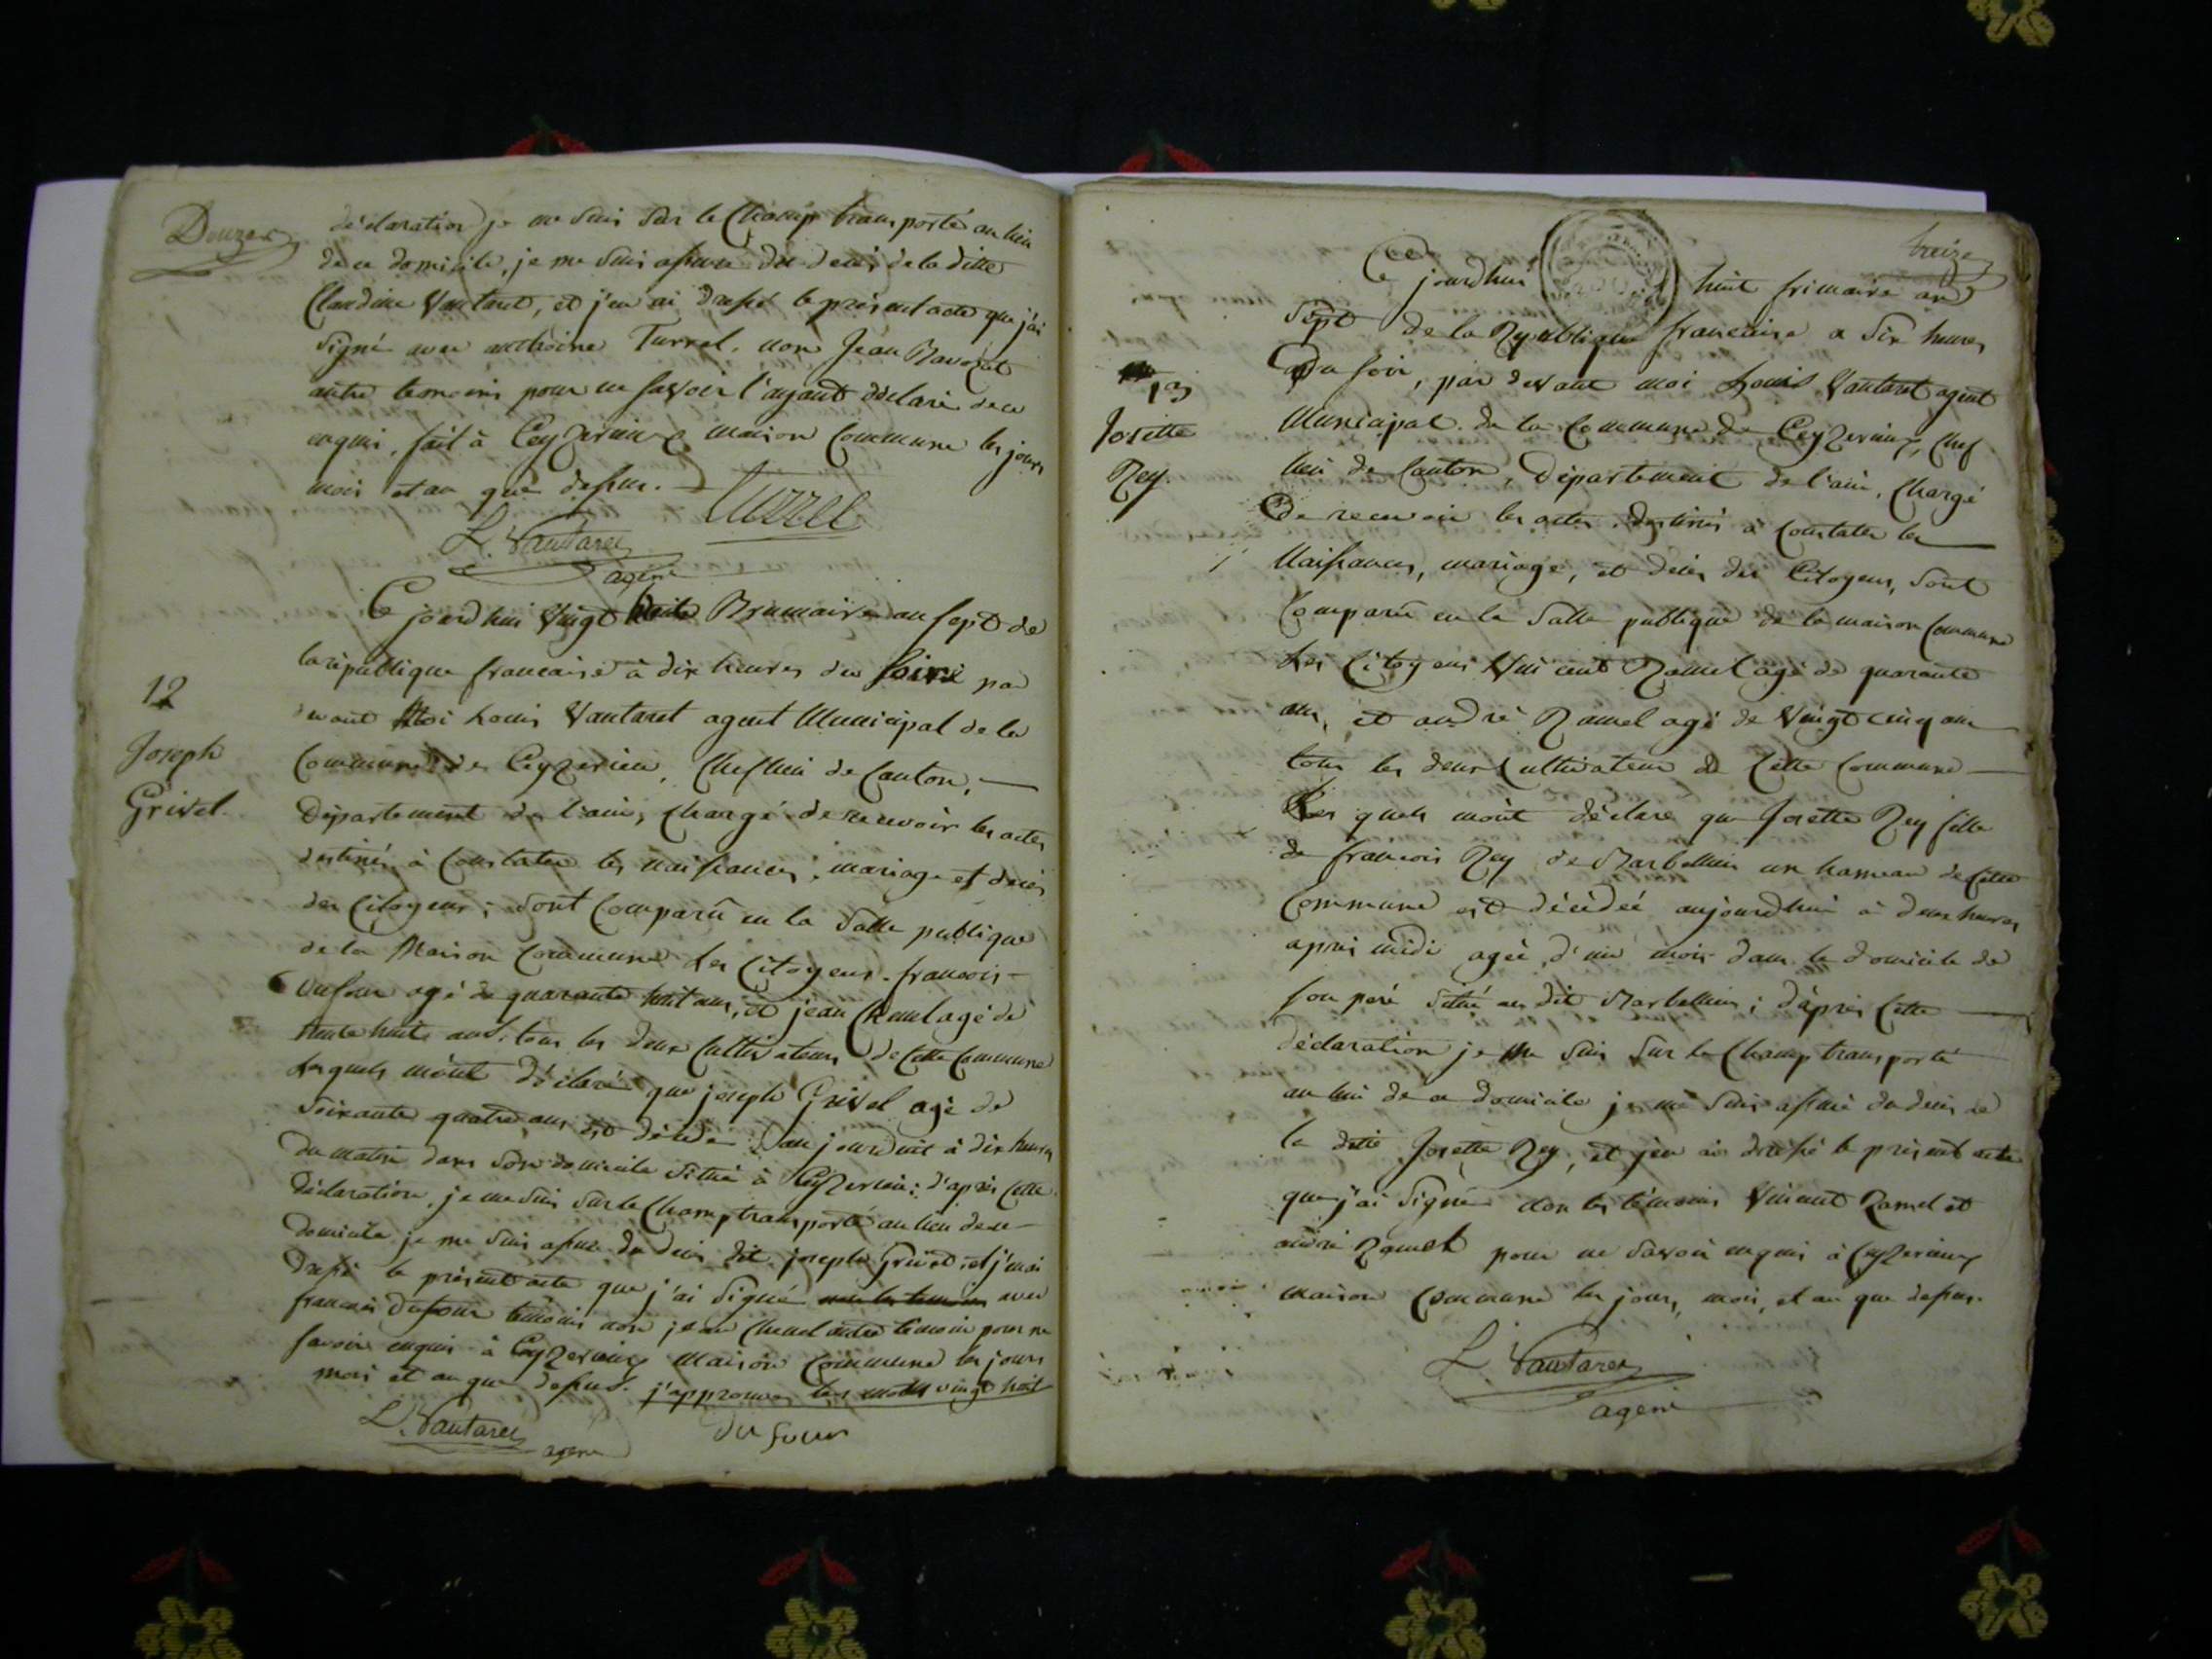 Douze
déclaration je me suis sur le Champ transporté au lieu
de ce domicile, je me suis assuré du decès de la ditte
Claudine Vautaret, et j'en ai dressé le présent acte que j'ai
signé avec anthoine Turrel, non Jean
autre temoins pour ne savoir l'ayant déclaré de ce
enquis, fait à Ceyzerieux maison Commune les jours
mois et an que dessus.
Turrel
L. Vautaret
agent
Ce jourd'hui vingt huit Brumaire an sept de
la république francaise à dix heures du soir par
devant Moi Louis Vautaret agent Municipal de la
12
Joseph
Grivel.
Commune de Ceyzerieu, Cheflieu de Canton,
Département de l'ain, Chargé de recevoir les actes
destinés à Constater les naissances, mariage et decès
des Citoyens; sont Comparû en la Salle publique
de la Maison Commune Les Citoyens francois
Dufour agé de quarante huit ans, et jean Chenel agé de
trente huit ans, tous les deux Cultivateurs de Cette Commune
Lesquels m'ont déclaré que joseph Grivel agé de
soixante quatre ans est décédé aujourduit à dix heures
du matin dans son domicile situé à Ceyzerieu; d'après Cette
déclaration, je me suis sur le Champ transporté au lieu de ce
domicile je me suis assuré du decès dit joseph Grivel, et j'en ai
dressé le présent acte que j'ai signé non les temoins avec
francois Dufour témoins non jean Chenel autre témoin pour ne
savoir enquis à Ceyzerieux maison Commune les jours
mois et an que dessus. j'approuve les mots vingt huit
L. Vautaret agent
du four
treize
Ce jourdhui huit frimaire an
Sept de la République francaise a six heures
Du soir, par devant moi Louis Vautaret agent
13
Josette
Rey.
Municipal de la Commune de Ceyzerieux, Chef
lieu de Canton, Département de l'ain, Chargé
De recevoir les actes destinés à Constater les
Naissances, mariage, et decès des Citoyens, sont
Comparû en la Salle publique de la maison Commune
Les Citoyens Vincent Ramel agé de quarante
ans, et andré Ramel agé de vingt cinq ans
tous les deux Cultivateur de Cette Commune
Les quels m'ont déclaré que Josette Rey fille
de francois Rey de Marbellin un hameau de Cette
Commune est décédée aujourdhui à deux heures
apres midi agée d'un mois dans le domicile de
son peré situé au dit Marbellin; d'après Cette
déclaration je me suis sur le Champ transporté
au lieu de ce domicile je me suis assuré du decès de
la ditte Josette Rey, et j'en ai dressé le présent acte
que j'ai signé non les témoins Vincent Ramel et
andré Ramel pour ne savoir enquis à Ceyzerieux
maison Commune les jours, mois, et an que dessus.
L. Vautaret
agent